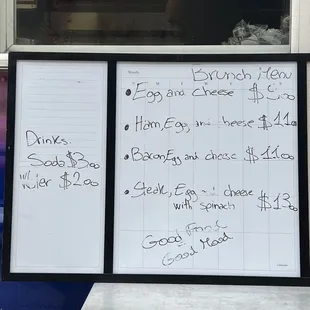 Drinks:
Soda $3.00
$2.00
Brunch Menu
Egg and cheese
Ham, Egg, heese $11.00
Bacon, Egg and cheese $11.00
Steak, Egg cheese
with spinach $13.00
Good Food
Good Mood